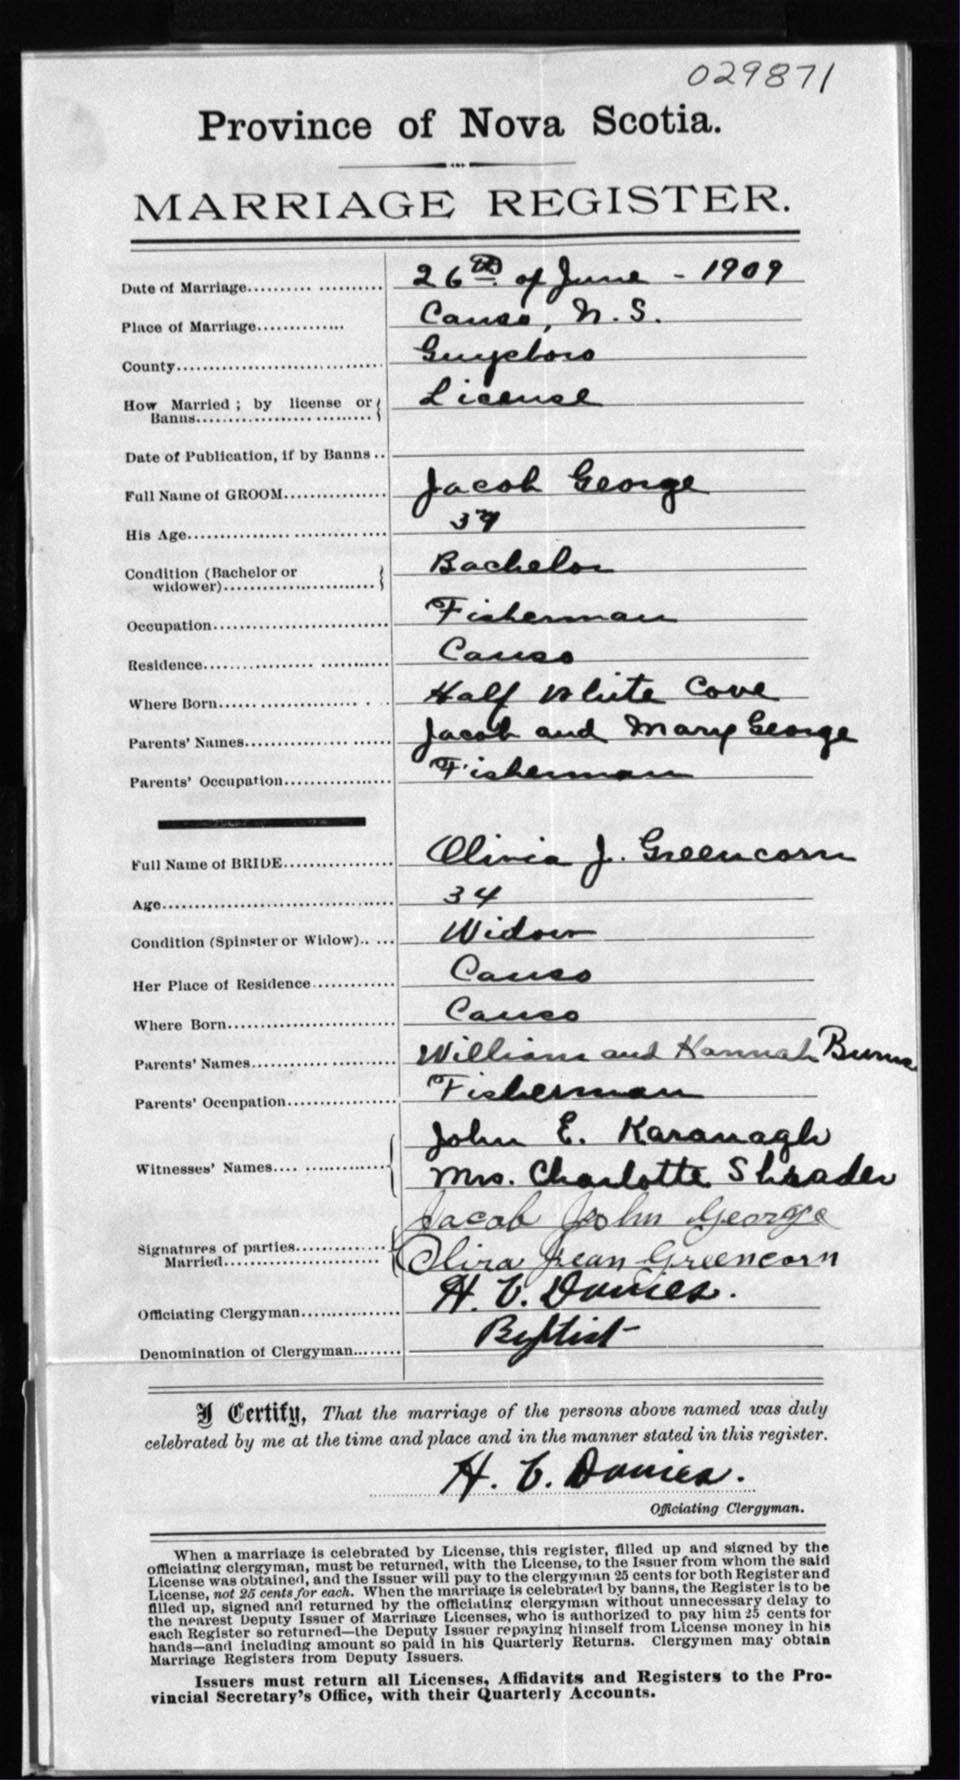 029871
Province of Nova Scotia.
MARRIAGE REGISTER.
Date of Marriage.......... ........... 26th of June - 1909
Place of Marriage.............. Canso, N. S.
County.................................. Guysboro
How Married ; by license or Banns.................... ......... License
Date of Publication, if by Banns ..
Full Name of GROOM................ Jacob George
His Age................. ............... 39
Condition (Bachelor or widower).......................... Bachelor
Occupation............................. Fisherman
Residence.................. ........... Canso
Where Born...... ................ . . Half White Cove
Parents' Names................. ....... Jacob and Mary George
Parents' Occupation.................. Fisherman
Full Name of BRIDE................. Olivia J. Greencorn
Age...................................... 34
Condition (Spinster or Widow).. ... Widow
Her Place of Residence............. Canso
Where Born............................ Canso
Parents' Names........................ William and Hannah Burns
Parents' Occupation.................. Fisherman
Witnesses' Names.... .............. John E. Kavanagh
Mrs. Charlotte Shrader
Signatures of parties.................. Jacob John George
Married........................... Olivia Jean Greencorn
Officiating Clergyman................ H. C. Davies.
Denomination of Clergyman........ Baptist
I Certify, That the marriage of the persons above named was duly
celebrated by me at the time and place and in the manner stated in this register.
H. C. Davies.
Officiating Clergyman.
When a marriage is celebrated by License, this register, filled up and signed by the
officiating clergyman, must be returned, with the License, to the Issuer from whom the said
License was obtained, and the Issuer will pay to the clergyman 25 cents for both Register and
License, not 25 cents for each. When the marriage is celebrated by banns, the Register is to be
filled up, signed and returned by the officiating clergyman without unnecessary delay to
the nearest Deputy Issuer of Marriage Licenses, who is authorized to pay him 25 cents for
each Register so returned—the Deputy Issuer repaying himself from License money in his
hands—and including amount so paid in his Quarterly Returns. Clergymen may obtain
Marriage Registers from Deputy Issuers.
Issuers must return all Licenses, Affidavits and Registers to the Pro-
vincial Secretary's Office, with their Quarterly Accounts.